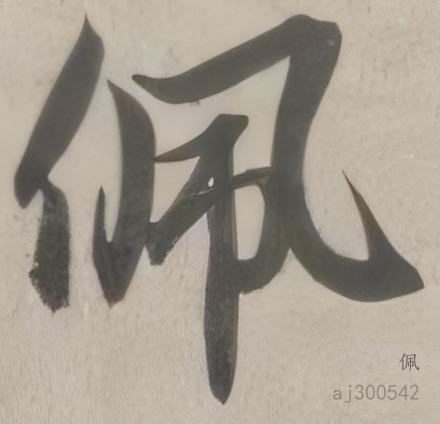 佩
佩
aj300542